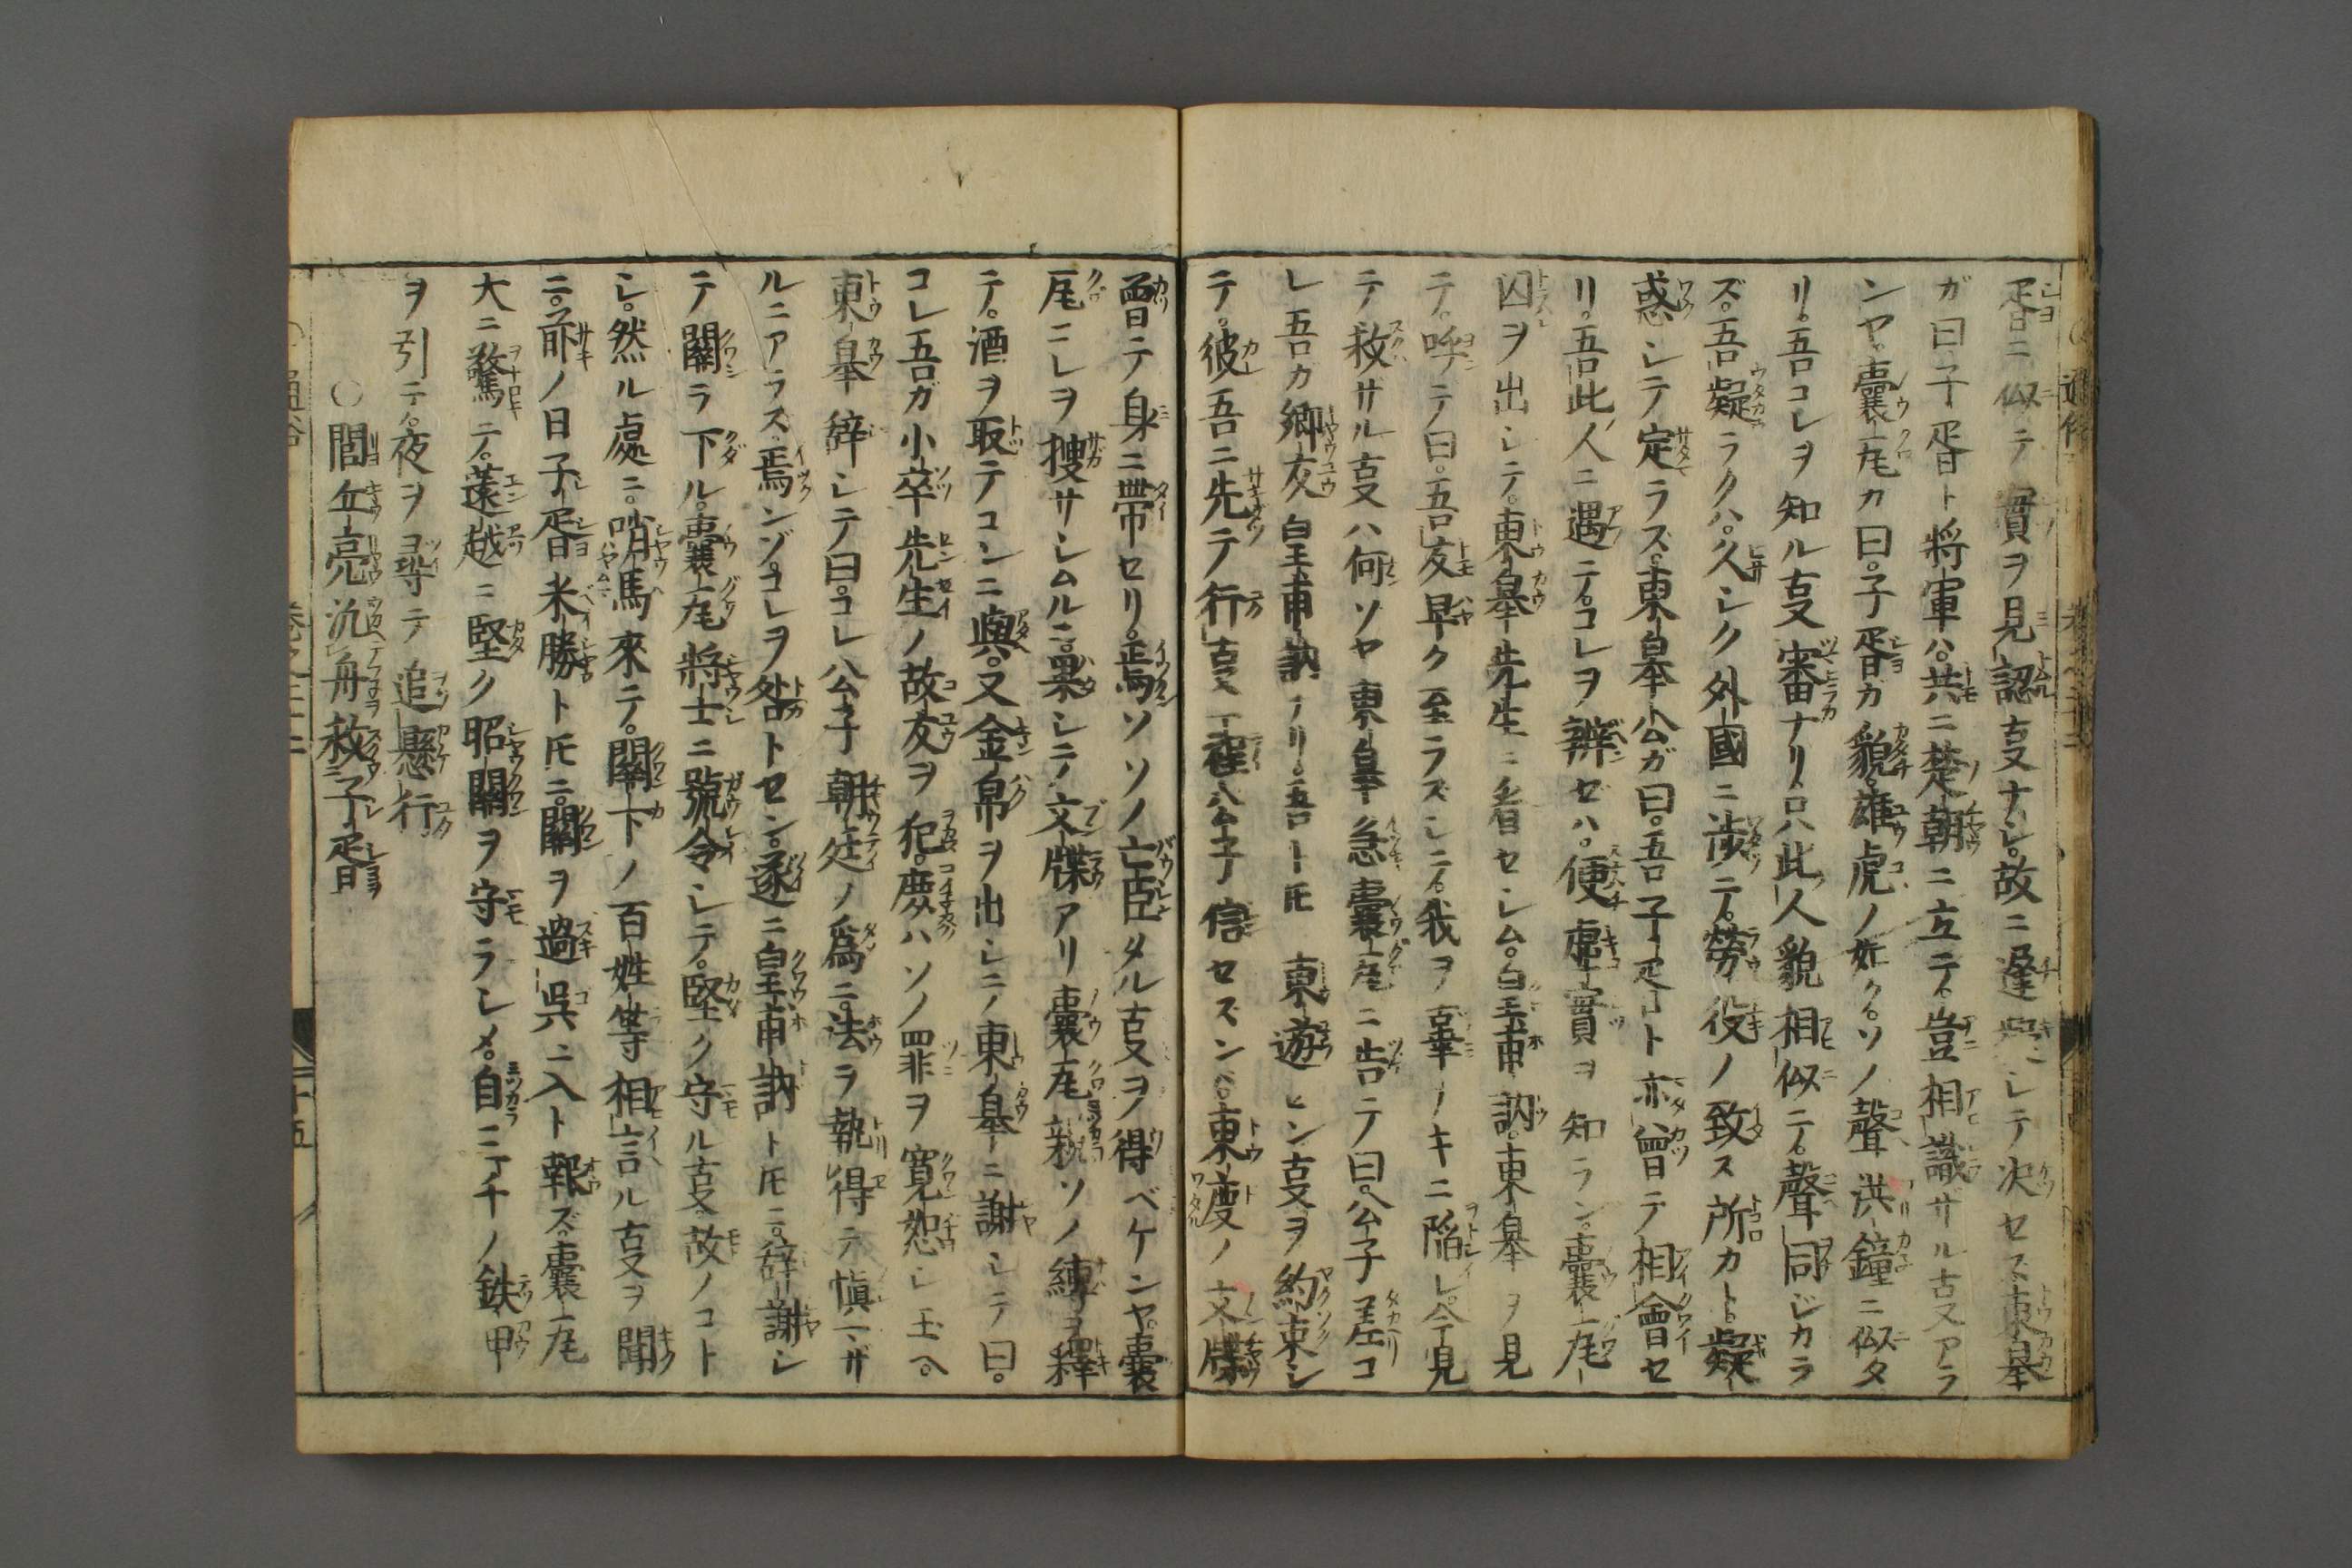 胥ニ似テ實ヲ見認ヿナレ故ニ遲レテ决セス東皐
ガ曰子胥ト将軍ハ共ニ楚朝ニ立テ豈相識サルヿアラ
ンヤ囊尾カ曰子胥カ貌雄虎ノ如クソノ聲洪鐘ニ似タ
リ吾コレヲ知ルヿ審ナリ只此人貌相似テ聲同ジカラ
ズ吾疑ラクハ久シク外國ニ渉テ勞役ノ致ス所カト疑
惑シテ定ラズ東皐公ガ曰吾子胥ト亦曽テ相會セ
リ吾此人ニ遇テコレヲ辨セハ便虚實ヲ知ラン囊尾
囚ヲ出シテ東皐先生ニ看セシム皇甫訥東皐ヲ見
テ呼テ曰吾友早ク至ラズシテ我ヲ辜ノキニ陥レ今見
テ救サルヿハ何ソヤ東皐急囊尾ニ告テ曰公子差コ
レ吾カ郷友皇甫訥ナリ吾ト㐧東遊センヿヲ約束シ
テ彼吾ニ先テ行ヿ一程公子信セズンバ東度ノ文牒
曽テ身ニ帯セリ焉ソソノ亡臣タルヿヲ得ベケンヤ囊
尾ニレヲ捜サシムルニ果シテ文牒アリ囊尾親ソノ縛ヲ釋
テ酒ヲ取テコンニ與又金帛ヲ出シテ東皐ニ謝シテ曰
コレ吾ガ小卒先生ノ故友ヲ犯慶ハソノ罪ヲ寛恕シ玉ヘ
東皐辞シテ曰コレ公子朝廷ノ爲ニ法ヲ執得テ愼ザ
ルニアラス焉ンゾコレヲ咎トセン遂ニ皇甫訥ト㐧ニ辞謝レ
テ關ヲ下ル囊尾将士ニ號令シテ堅ク守ルヿ故ノコト
シ然ル處ニ哨馬來テ關下ノ百姓等相言ルヿヲ聞
ニ前ノ日子胥米勝ト㐧ニ關ヲ過呉ニ入ト報ズ囊尾
大ニ驚テ薳越ニ堅ク昭關ヲ守ラシメ自ニ千ノ鉄甲
ヲ引テ夜ヲヨ尋テ追懸行
○閭丘亮汎舟救子胥